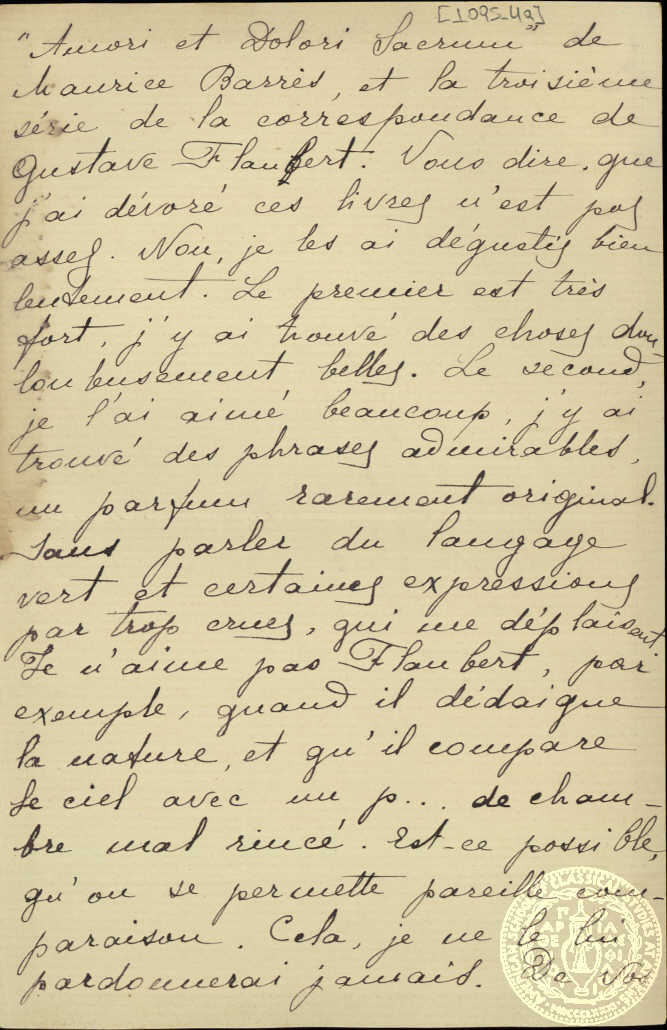 [1095-4a]
"Amori et Dolori Sacrum" de
Maurice Barrès, et la troisième
série de la correspondance de
Gustave Flaubert. Vous dire, que
j'ai dévoré ces livres n'est pas
assez. Non, je les ai dégustés bien
lentement. Le premier est très
fort, j'y ai trouvé des choses dou-
loureusement belles. Le second,
je l'ai aimé beaucoup, j'y ai
trouvé des phrases admirables,
un parfum rarement original.
Sans parler du langage
vert et certaines expressions
par trop crues, qui me déplaisent.
Je n'aime pas Flaubert, par
exemple, quand il dédaigne
la nature, et qu'il compare
le ciel avec un p... de cham-
bre mal rincé. Est-ce possible,
qu'on se permette pareille com-
paraison. Cela, je ne le lui
pardonnerai jamais. De vos